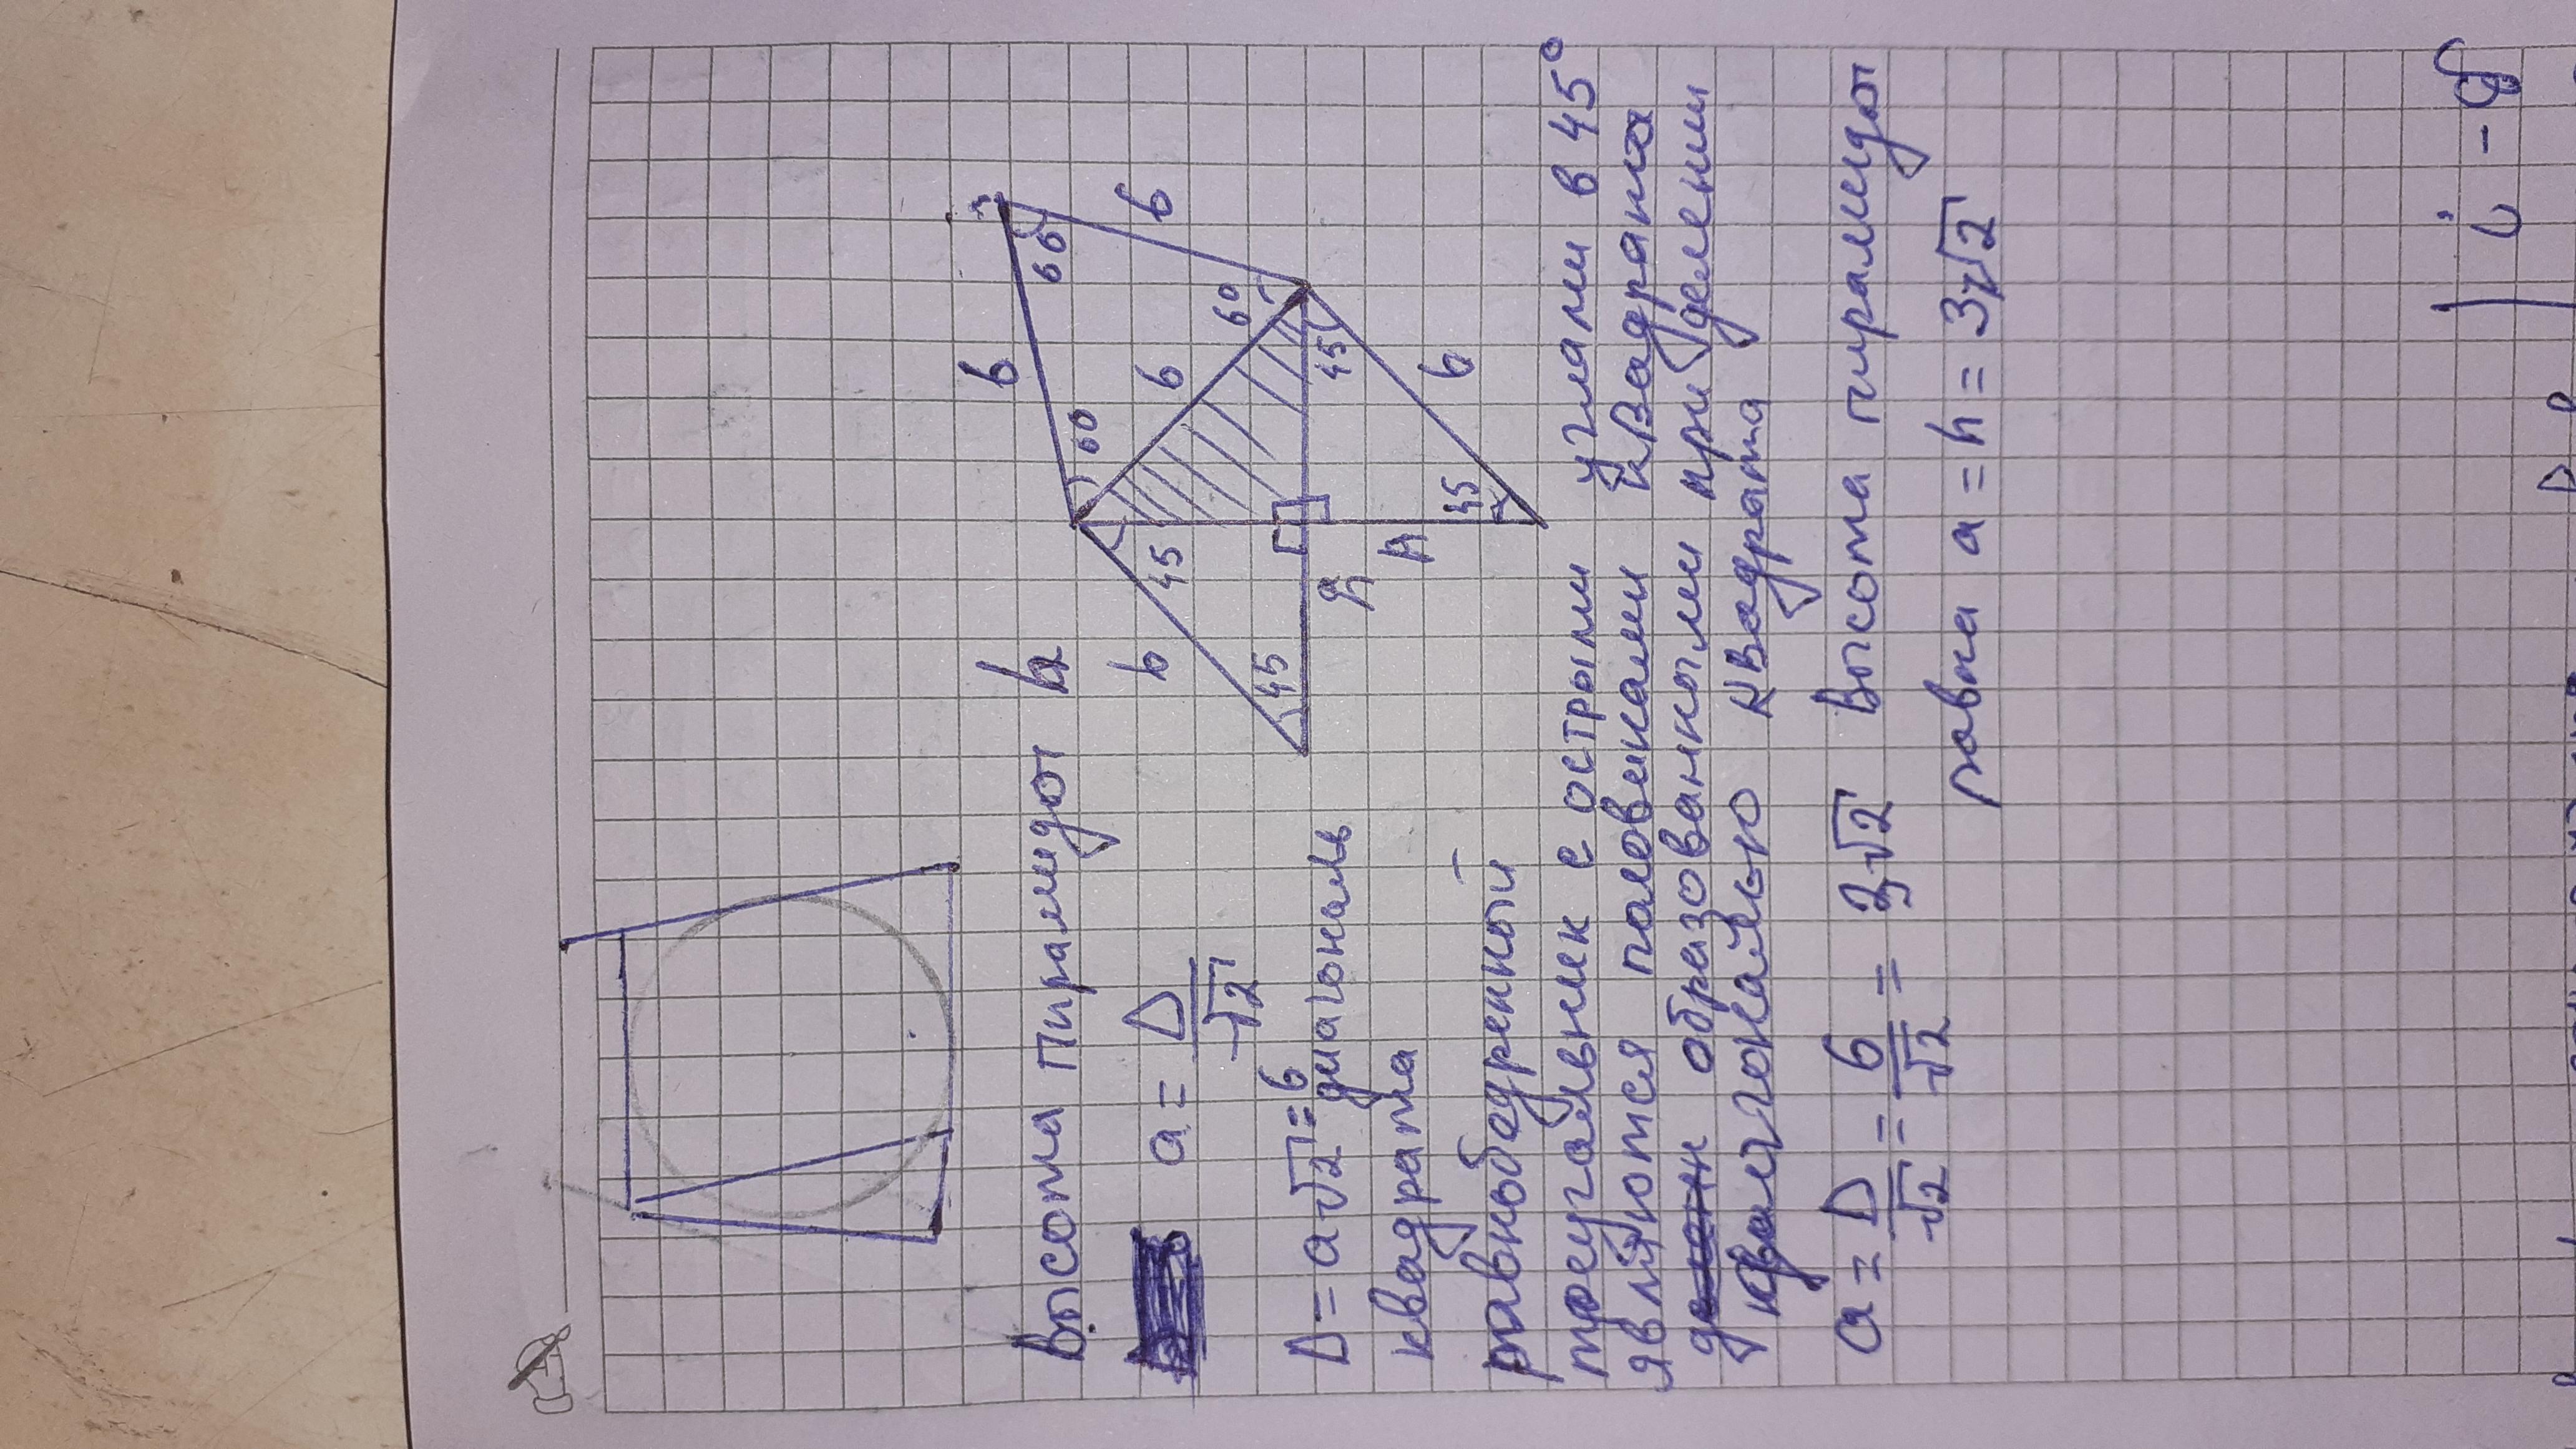 Высота пирамиды h
a = D/√2
D = a√2 = 6
диагональ
квадрата
равнобедренный
треугольник с острыми углами в 45°
являются половинками квадрата
образованными при делении
квадрата
a = D/√2 = 6/√2 = 3√2 Высота пирамиды
равна a = h = 3√2
6
6
6
6
6
60
60
60
45
45
45
45